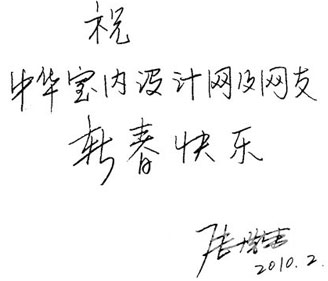 祝
中华室内设计网及网友
新春快乐
张
2010.2.